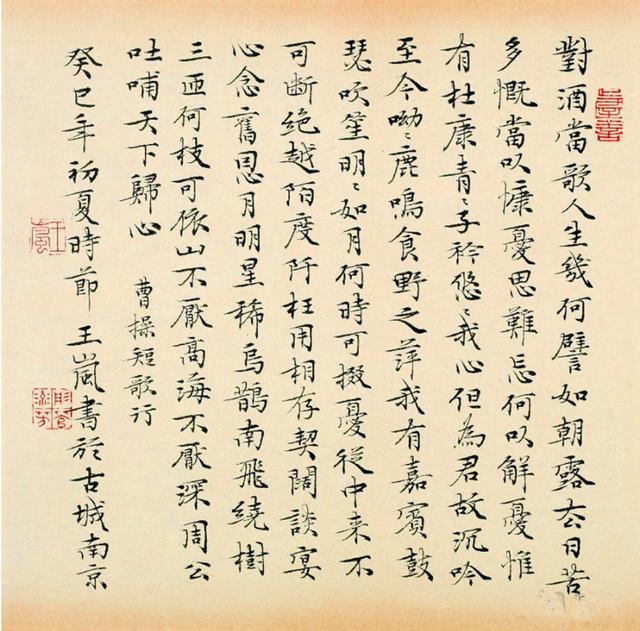 對酒當歌人生幾何譬如朝露去日苦
多慨當以慷憂思難忘何以解憂惟
有杜康青〻子衿悠〻我心但為君故沉吟
至今呦〻鹿鳴食野之萍我有嘉賓鼓
瑟吹笙明〻如月何時可掇憂從中来不
可断絶越陌度阡枉用相存契闊談宴
心念舊恩月明星稀烏鵲南飛繞樹
三匝何枝可依山不厭高海不厭深周公
吐哺天下歸心 曹操短歌行
癸巳年初夏時節王嵐書於古城南京
王嵐